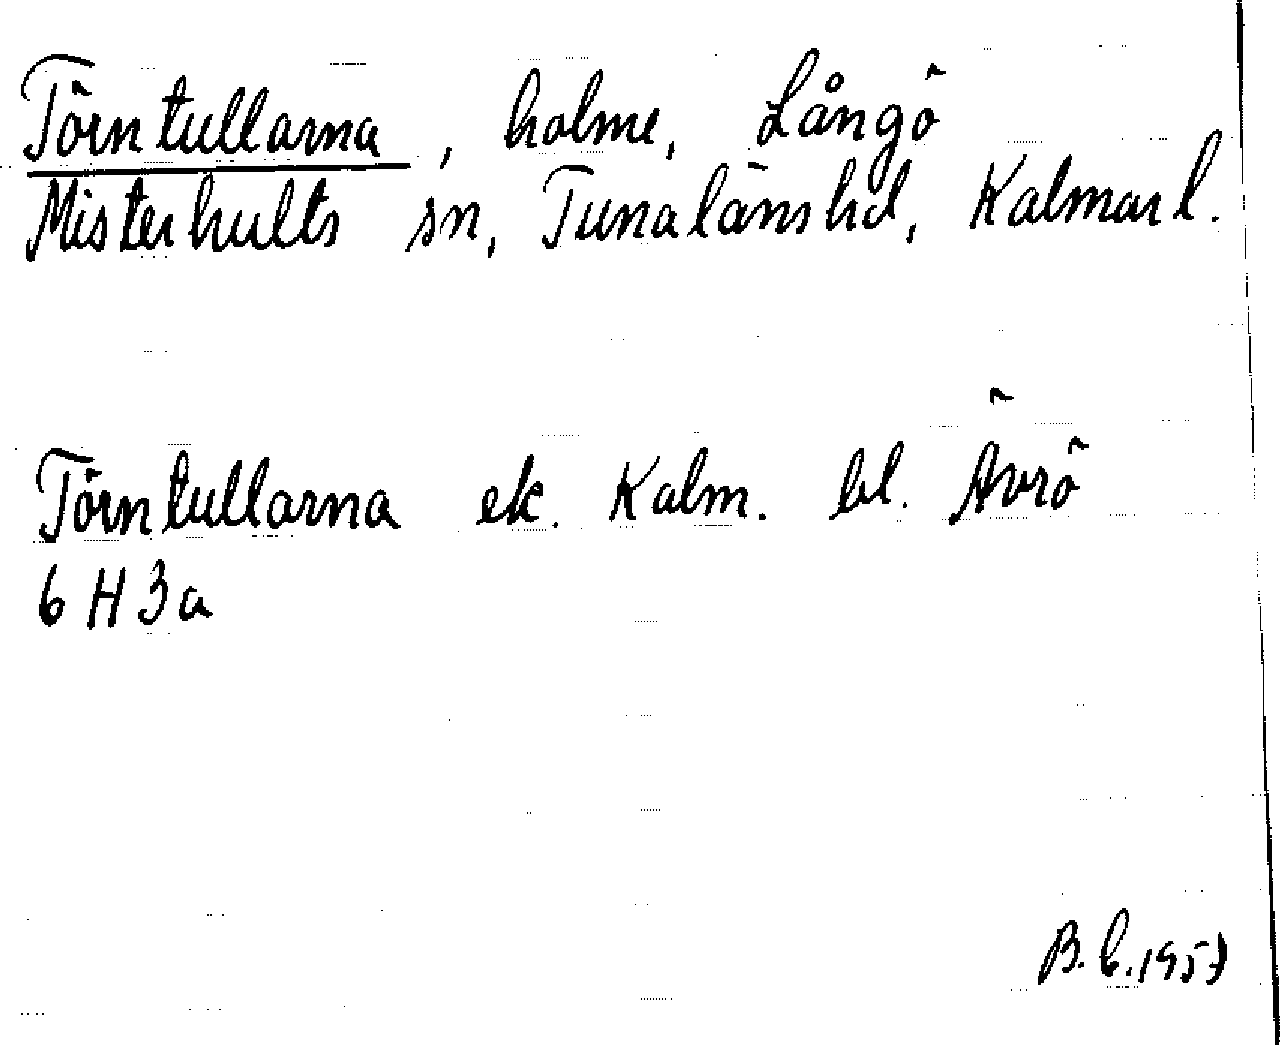 Törntullarna, holme, Långö
Misterhults sn, Tunaläns hd, Kalmar l.
Törntullarna ek. Kalm. bl. Ävrö
6 H 3a
B.E. 1957